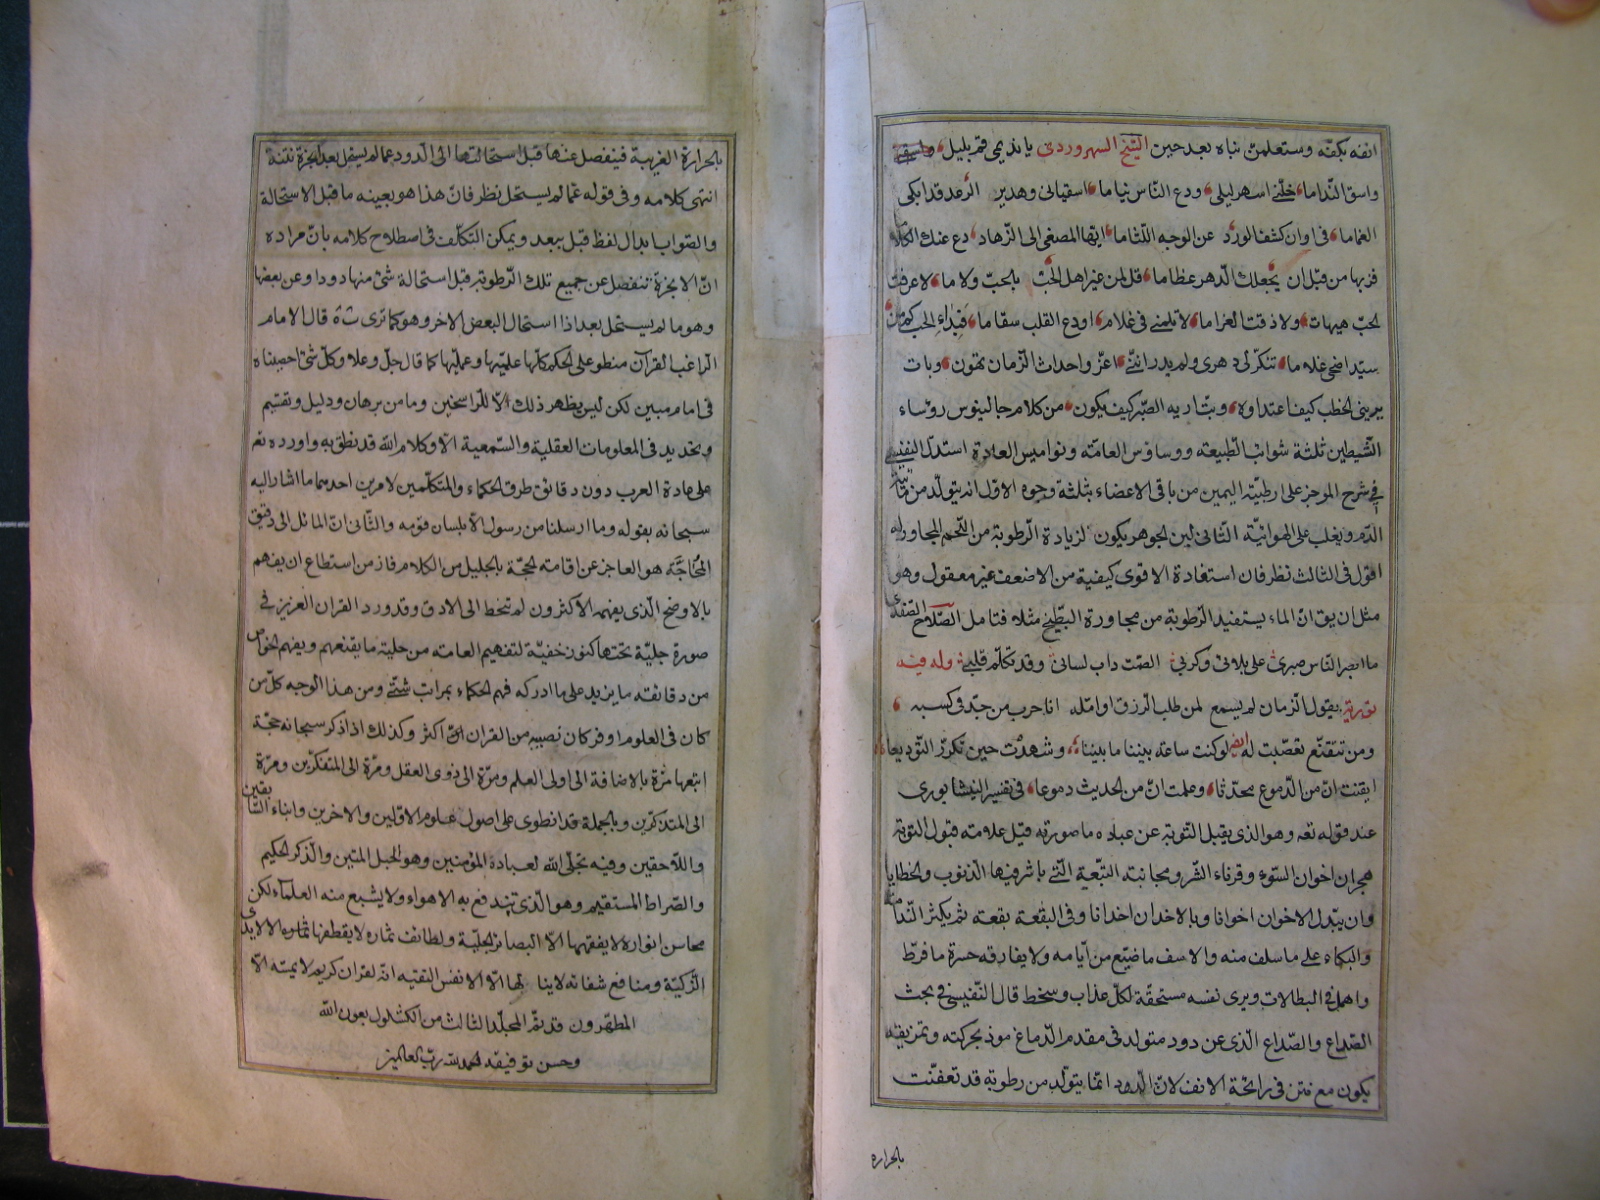 انفه بكفه وستعلمن نباه بعد حين الشيخ السهروردي يا نديمي قم بليل
واسق النداما خلني اسهر ليلى ودع الناس نياما اسقياني وهدير الرعد قد ابكى
الغماما في اوان كشف الورد عن الوجه اللثاما ايها المصغى الى الزهاد دع عنك الكلاما
فز بها من قبل ان يجعلك الدهر عظاما قل لمن عير اهل الحب بالحب ولاما لا عرفت
الحب هيهات ولا ذقت الغراما لا تلمني في غلام اودع القلب سقاما فبداء الحب كم من
سيد اضحى غلاما تنكر لي دهري ولم يدر انني اعز واحداث الزمان تهون وبات
يريني الخطب كيف اعتداوه وبت اريه الصبر كيف يكون من كلام جالينوس رؤساء
الشيطين ثلثة شوائب الطبيعة ووساوس العامة ونواميس العادة استدل النفيسي
في شرح الموجز على ارطبية اليمين من باقي الاعضاء بثلثة وجوه الاول انه يتولد من مائية
الدم ويغلب على الهوائية الثاني لين الجوهر يكون لزيادة الرطوبة من اللحم المجاور له
اقول في الثالث نظر فان استفادة الاقوى كيفية من الاضعف غير معقول وهو
مثل ان يق ان الماء يستفيد الرطوبة من مجاورة البطيخ مثلا فتامل الصلاح الصفدى
ما ابصر الناس صبرى على بلائى وكربى الصمت داب لسانى وقد تكلم قلبى وله فيه
تورية يقول الزمان لم يسمع لمن طلب الرزق او امله انا حرب من جد في كسبه
ومن تقنع تعصبت له ايضا لو كنت ساعة بيننا ما بيننا وشهدت حين تكرر التوديعا
ايقنت ان من الدموع محدثا وعلمت ان من الحديث دموعا في تفسير النيشابورى
عند قوله تعه وهو الذي يقبل التوبة عن عباده ما صورته قيل علامة قبول التوبة
هجران اخوان السوء وقرناء الشر ومجانبة التبعة التي باشر فيها الذنوب والخطايا
وان يبدل الاخوان اخوانا وبالاخدان اخدانا وفي البقعة بقعة ثم يكثر الندامة
والبكاء على ما سلف منه والاسف ما ضيع من ايامه ولا يفارقه حسرة ما فرط
واهمل في البطالات ويرى نفسه مستحقة لكل عذاب وسخط قال النفيسي في بحث
الصداع والصداع الذي عن دود متولد في مقدم الدماغ موذ بحركته وتمزيقه
يكون مع نتن في رائحة الانف لان الدود انما يتولد من رطوبة قد تعفنت
بالحراره
بالحرارة الغريبة فينفصل عنها قبل استحالتها الى الدود عما لم يستحل بعد ابخرة نتنة
انتهى كلامه وفي قوله عما لم يستحل نظر فان هذا هو بعينه ما قبل الاستحالة
والصواب ابدال لفظ قبل ببعد ويمكن التكلف في اصطلاح كلامه بان مراده
ان الابخرة تنفصل عن جميع تلك الرطوبة قبل استحالة شئ منها دودا وعن بعضها
وهو ما لم يستحل بعد اذا استحال البعض الاخر وهو كما ترى قال الامام
الراغب القرآن منطو على الحكم كلها علميها وعمليها كما قال جل وعلا وكل شئ احصيناه
في امام مبين لكن ليس يظهر ذلك الا للراسخين وما من برهان ودليل وتقسيم
وتحديد في المعلومات العقلية والسمعية الا وكلام الله قد نطق به واورده تع
على عادة العرب دون دقائق طرق الحكماء والمتكلمين لامرين احدهما ما اشار اليه
سبحانه بقوله وما ارسلنا من رسول الا بلسان قومه والثاني ان المائل الى دقيق
المحاجة هو العاجز عن اقامة الحجة بالجليل من الكلام فاز من استطاع ان يفهم
بالاوضح الذي يفهمه الاكثرون لم تنخط الى الادق وقد ورد القران العزيز في
صورة جلية تحتها كنوز خفية لتفهيم العامة من جليته ما يقنعهم ويفهم الخواص
من دقائقه ما يزيد على ما ادركه فهم الحكماء بمراتب شتى ومن هذا الوجه كل من
كان في العلوم اوفر كان نصيبه من القران اكثر وكذلك اذا ذكر سبحانه حجة
اتبعها مرة بالاضافة الى اولى العلم ومرة الى ذوى العقل ومرة الى المتفكرين ومرة
الى المتذكرين وبالجملة قد انطوى على اصول علوم الاولين والاخرين وانباء السابقين
واللاحقين وفيه تجلى الله لعباده المؤمنين وهو الحبل المتين والذكر الحكيم
والصراط المستقيم وهو الذي تندفع به الاهواء ولا يشبع منه العلماء لكن
محاسن انواره لا يفقهها الا البصائر الجلية ولطائف ثماره لا يقطفها الا الايدى
الزكية ومنافع شفائه لا ينالها الا الانفس التقية انه لقران كريم لا يمسه الا
المطهرون قد تم المجلد الثالث من الكشكول بعون الله
وحسن توفيقه الحمد لله رب العالمين